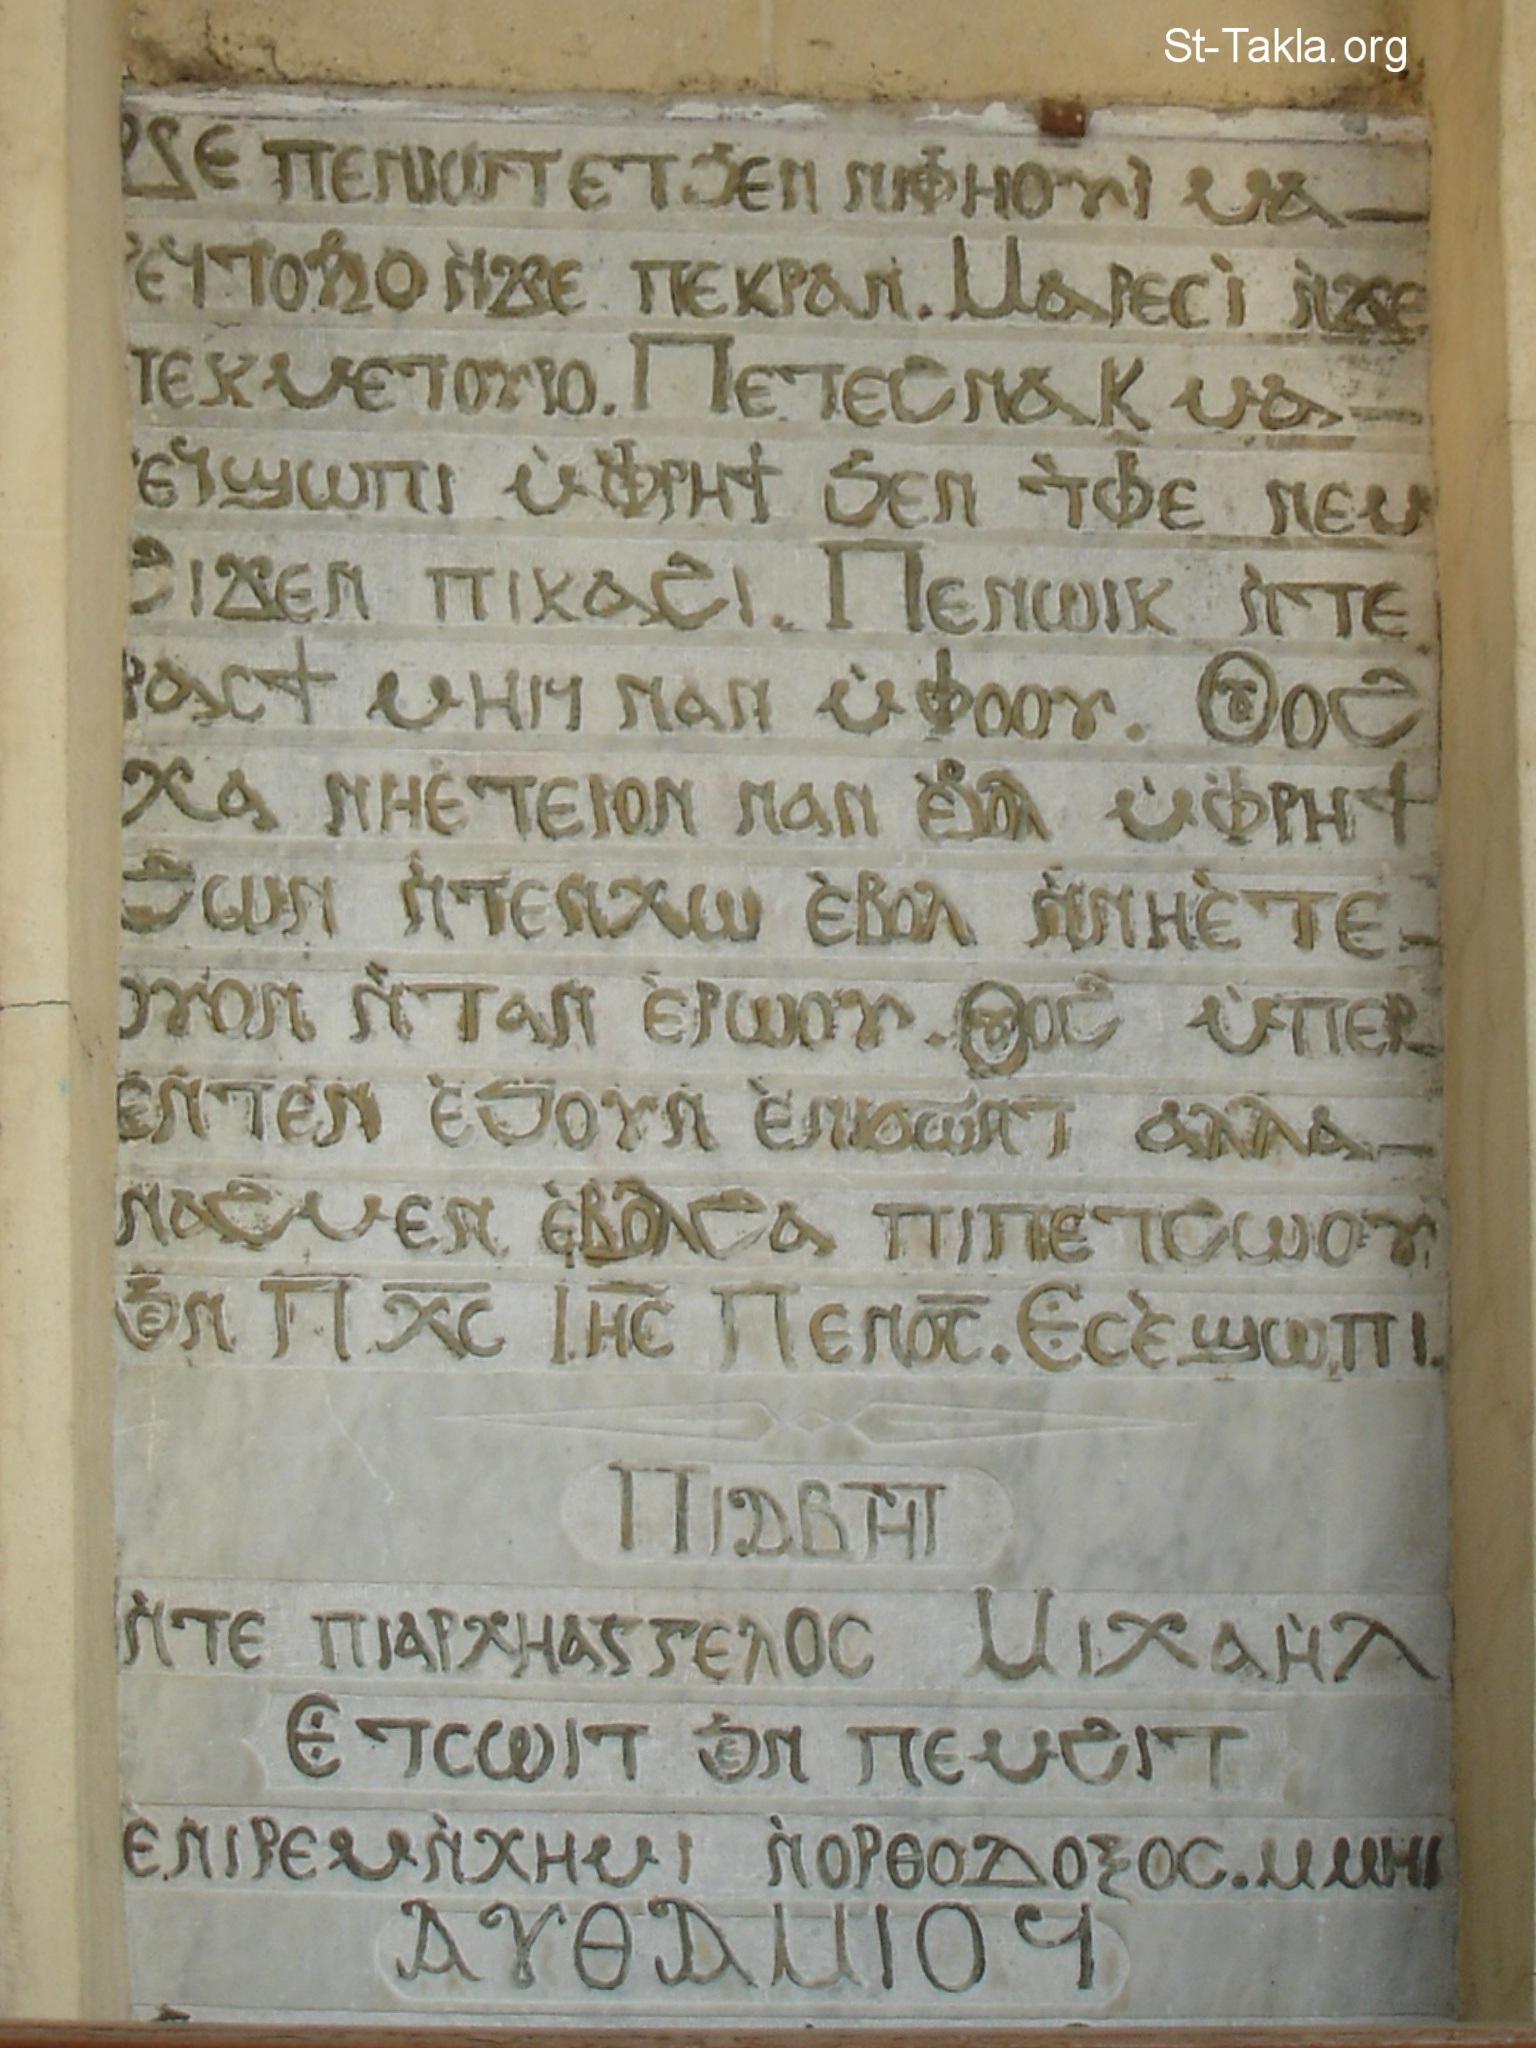 St-Takla.org
ϪⲈ ⲠⲈⲚⲒⲰⲦ ⲈⲦϦⲈⲚ ⲚⲒⲪⲎⲞⲨⲒ ⲘⲀ-
ⲢⲈϤⲦⲞⲨⲂⲞ ⲚϪⲈ ⲠⲈⲔⲢⲀⲚ. ⲘⲀⲢⲈⲤⲒ̀ ⲚϪⲈ
ⲦⲈⲔⲘⲈⲦⲞⲨⲢⲞ. ⲠⲈⲦⲈϨⲚⲀⲔ ⲘⲀ-
ⲢⲈϤϢⲰⲠⲒ Ⲙ̀ⲪⲢⲎϮ ϦⲈⲚ Ⲧ̀ⲪⲈ ⲚⲈⲘ
ϨⲒϪⲈⲚ ⲠⲒⲔⲀϨⲒ. ⲠⲈⲚⲰⲒⲔ Ⲛ̀ⲦⲈ
ⲢⲀⲤϮ ⲘⲎⲒϤ ⲚⲀⲚ Ⲙ̀ⲪⲞⲞⲨ. ⲞⲨⲞϨ
ⲬⲀ ⲚⲎⲈ̀ⲦⲈⲢⲞⲚ ⲚⲀⲚ Ⲉ̀ⲂⲞⲖ Ⲙ̀ⲪⲢⲎϮ
ϨⲰⲚ Ⲛ̀ⲦⲈⲚⲬⲰ Ⲉ̀ⲂⲞⲖ Ⲛ̀ⲚⲎⲈ̀ⲦⲈ-
ⲞⲨⲞⲚ Ⲛ̀ⲦⲀⲚ Ⲉ̀ⲢⲰⲞⲨ. ⲞⲨⲞϨ Ⲙ̀ⲠⲈⲢ
ⲈⲚⲦⲈⲚ Ⲉ̀ϦⲞⲨⲚ Ⲉ̀ⲠⲒⲢⲀⲤⲘⲞⲤ ⲀⲖⲖⲀ-
ⲚⲀϨⲘⲈⲚ Ⲉ̀ⲂⲞⲖϨⲀ ⲠⲒⲠⲈⲦϨⲰⲞⲨ
ϦⲈⲚ Ⲡ ⲬⲤ ⲒⲎⲤ ⲠⲈⲚⲞⲤ. ⲈⲤⲈ̀ϢⲰⲠⲒ.
ⲠⲒⲀⲂⲎⲦ
Ⲛ̀ⲦⲈ ⲠⲒⲀⲢⲬⲎⲀⲄⲄⲈⲖⲞⲤ ⲘⲒⲬⲀⲎ̀Ⲗ
ⲈⲦⲤⲰⲒⲦ ϦⲈⲚ ⲠⲈⲘϨⲒⲦ
Ⲉ̀ⲚⲒⲢⲈⲘⲚ̀ⲬⲎⲘⲒ Ⲛ̀ⲞⲢⲐⲞⲆⲞⲜⲞⲤ. ⲘⲘⲎⲒ
ⲀⲨⲐⲀⲘⲒⲞϤ